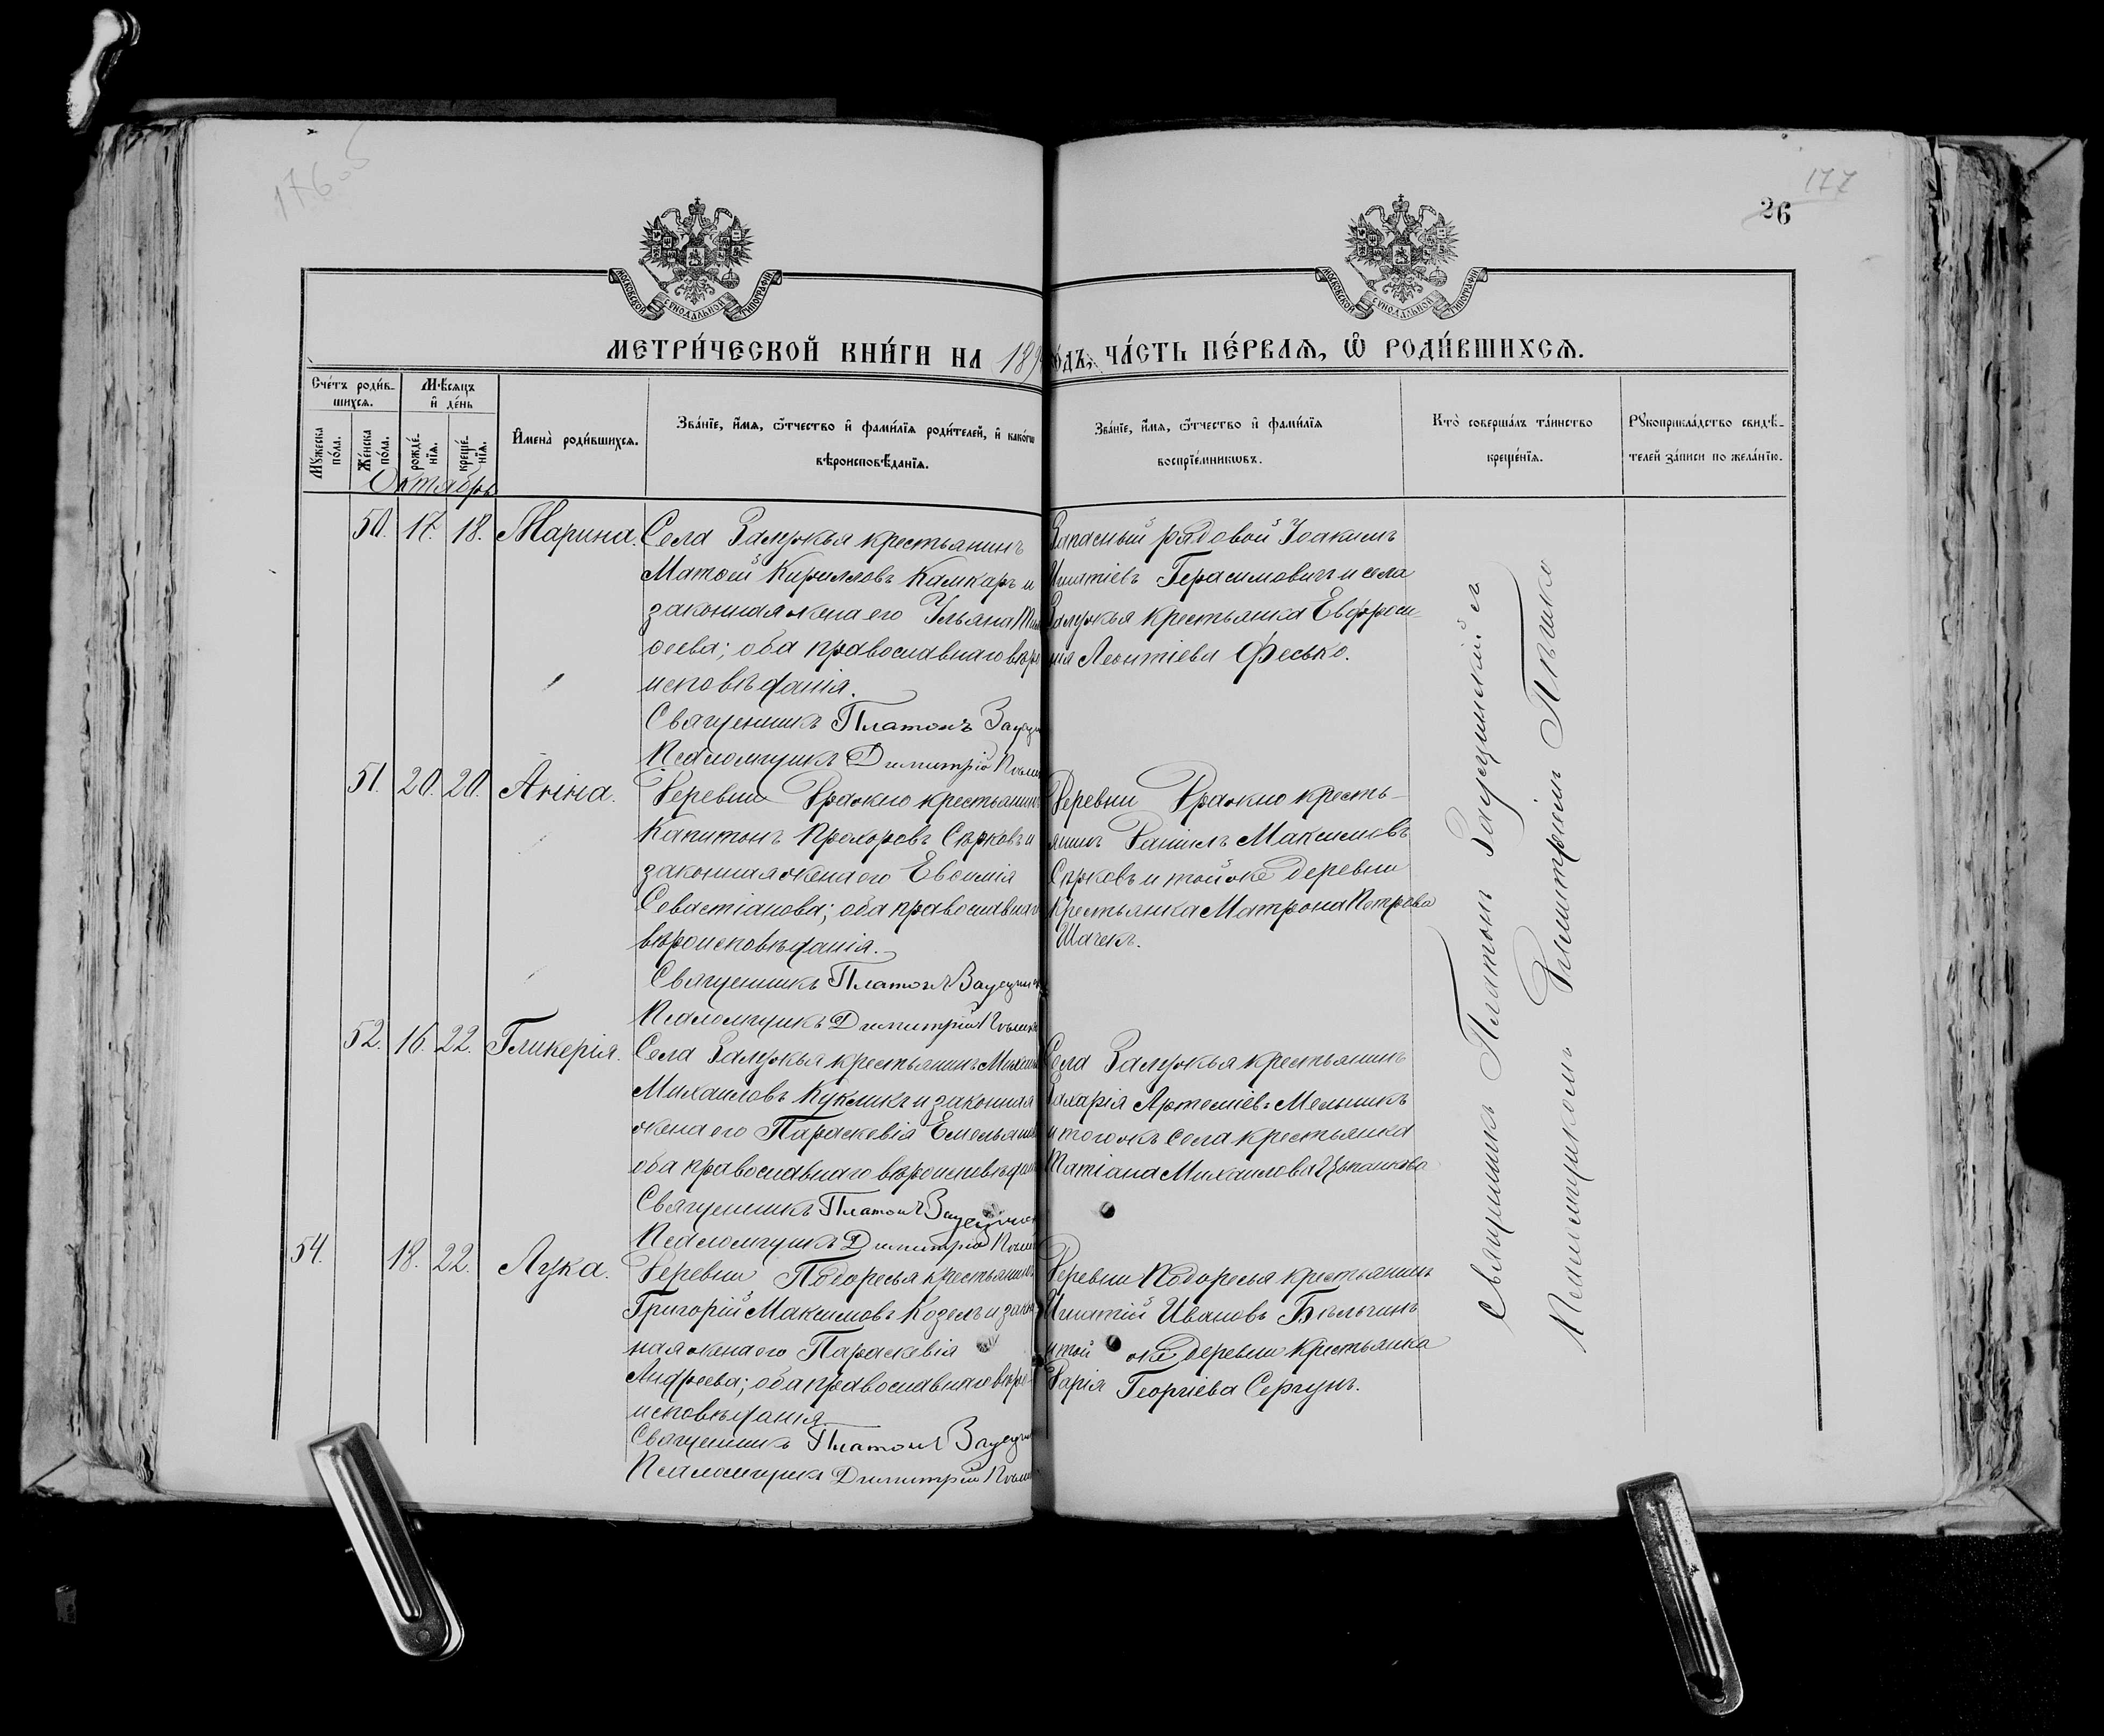 176 об
177
26
МОСКОВСКОЙ СѴНОДАЛЬНОЙ ТИПОГРАФІИ
МОСКОВСКОЙ СѴНОДАЛЬНОЙ ТИПОГРАФІИ
МЕТРИ́ЧЕСКОЙ КНИ́ГИ НА 189 о́дъ, ЧА́СТЬ ПЕ́РВАЯ, Ѡ҆ РОДИ́ВШИХСЯ.
Сче́тъ роди́в-
шихся.
Мѣ́сяцъ
и҆ де́нь
Мꙋ́жеска по́ла.
Же́нска по́ла.
рожде́-
нїя.
креще́-
нїя.
И҆мена̀ роди́вшихся.
Зва́нїе, и҆́мя, ѻ҆́тчество и҆ фами́лїя роди́телей, и҆ како́гѡ
вѣроисповѣ́данїя.
Зва́нїе, и҆́мя, ѻ҆́тчество и҆ фами́лїя
воспрїе́мникѡвъ.
Кто̀ соверша́лъ та́инство
креще́нїя.
Рꙋкоприкла́дство свидѣ́-
телей за́писи по жела́нїю.
Октябрь
50. 17. 18. Марина. Села Залужья крестьянинъ
Матѳей Кирилловъ Камкаръ и
законная жена его Ульяна
ѳеева; оба православнаго вѣро
исповѣданія.
Священникъ Платонъ
Псаломщикъ Димитрій
Запасный рядовой Іоакимъ
Игнатіевъ Герасимовичъ и села
Залужья крестьянка Евфроси-
нія Леонтіева Фесько.
51. 20. 20. Анна. Деревни Дражно крестьянинъ
Капитонъ Прохоровъ Сорковъ и
законная жена его Евѳимія
Севастіанова; оба православнаго
вѣроисповѣданія.
Священникъ Платонъ
Псаломщикъ Димитрій
Деревни Дражно кресть-
янинъ Даніилъ Максимовъ
Сорковъ и той же деревни
крестьянка Матрона Петрова
Шачекъ.
52. 16. 22. Гликерія. Села Залужья крестьянинъ
Михаиловъ Кукликъ и законная
жена его Параскевія
оба православнаго
Священникъ Платонъ
Псаломщикъ Димитрій
Села Залужья крестьянинъ
Захарія Артеміевъ Мельникъ
и того жъ села крестьянка
Татіана Михаилова
54. 18. 22. Лука. Деревни Подоресья крестьянинъ
Григорій Максимовъ Козелъ и закон
ная жена его Параскевія
Андреева; оба православнаго вѣро-
исповѣданія.
Священникъ Платонъ
Псаломщикъ Димитрій
Деревни Подоресья крестьянинъ
Игнатій Ивановъ Бѣльчинъ
и той же деревни крестьянка
Дарія Георгіева Сергунъ.
Священникъ Платонъ и
Псаломщикомъ Димитріемъ